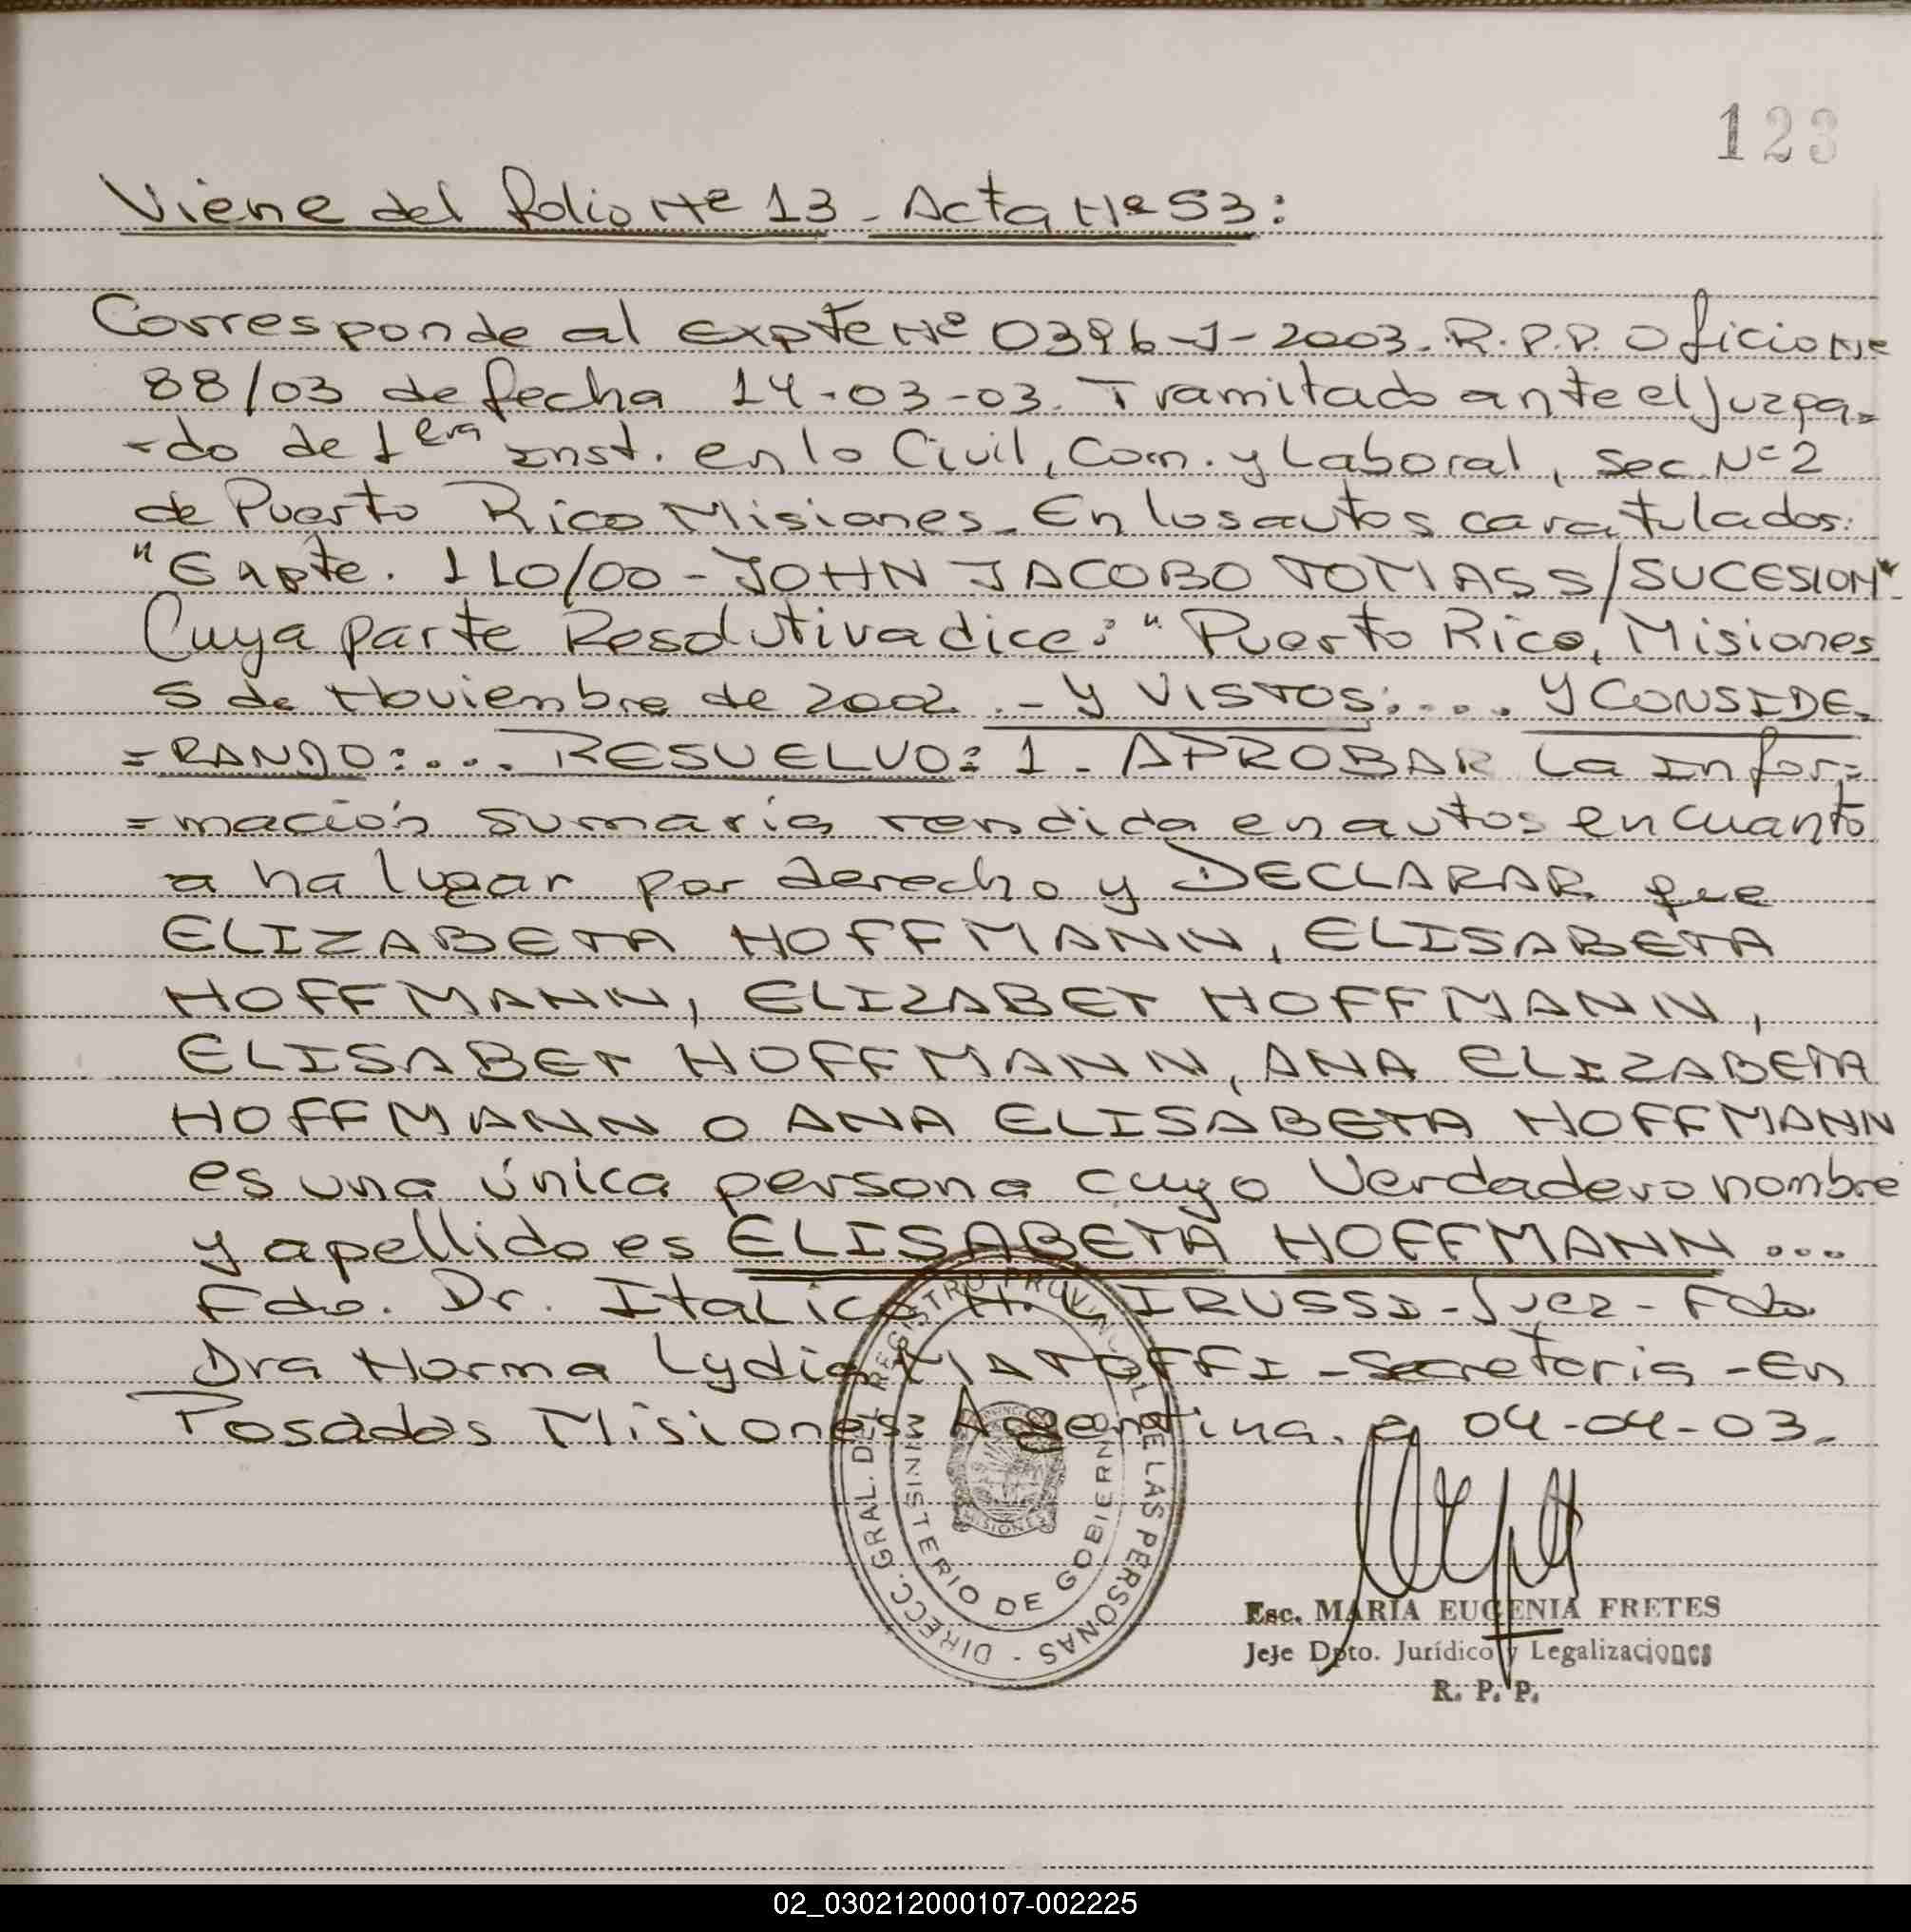 123
Viene del folio Nº 13 - Acta Nº 53:
Corresponde al Expte Nº 0396-J-2003. R.P.P. Oficio Nº
88/03 de fecha 14-03-03. Tramitado ante el Juzga=
-do de 1era Inst. en lo Civil, Com. y Laboral, Sec. Nº 2
de Puerto Rico Misiones. En los autos caratulados:
"Expte. 110/00 - JOHN JACOBO TOMAS S/SUCESION"
Cuya parte Resolutiva dice: "Puerto Rico, Misiones
5 de Noviembre de 2002. - Y VISTOS:.... Y CONSIDE=
=RANDO:... RESUELVO: 1 - APROBAR la Infor=
=mación sumaria rendida en autos en cuanto
a ha lugar por derecho y DECLARAR que
ELIZABETA HOFFMANN, ELISABETA
HOFFMANN, ELIZABET HOFFMANN,
ELISABET HOFFMANN, ANA ELIZABETA
HOFFMANN o ANA ELISABETA HOFFMANN
es una única persona cuyo Verdadero nombre
y apellido es ELISABETA HOFFMANN ...
Fdo. Dr. Italico H. - Juez - Fdo
Dra Norma Lydia - Secretaria - En
Posadas Misiones Argentina, a 04-04-03.
DIRECC. GRAL. DEL REGISTRO PROVINCIAL DE LAS PERSONAS -
MINISTERIO DE GOBIERNO
MISIONES
Esc. MARIA EUGENIA FRETES
Jefe Dpto. Jurídico y Legalizaciones
R. P. P.
02_030212000107-002225